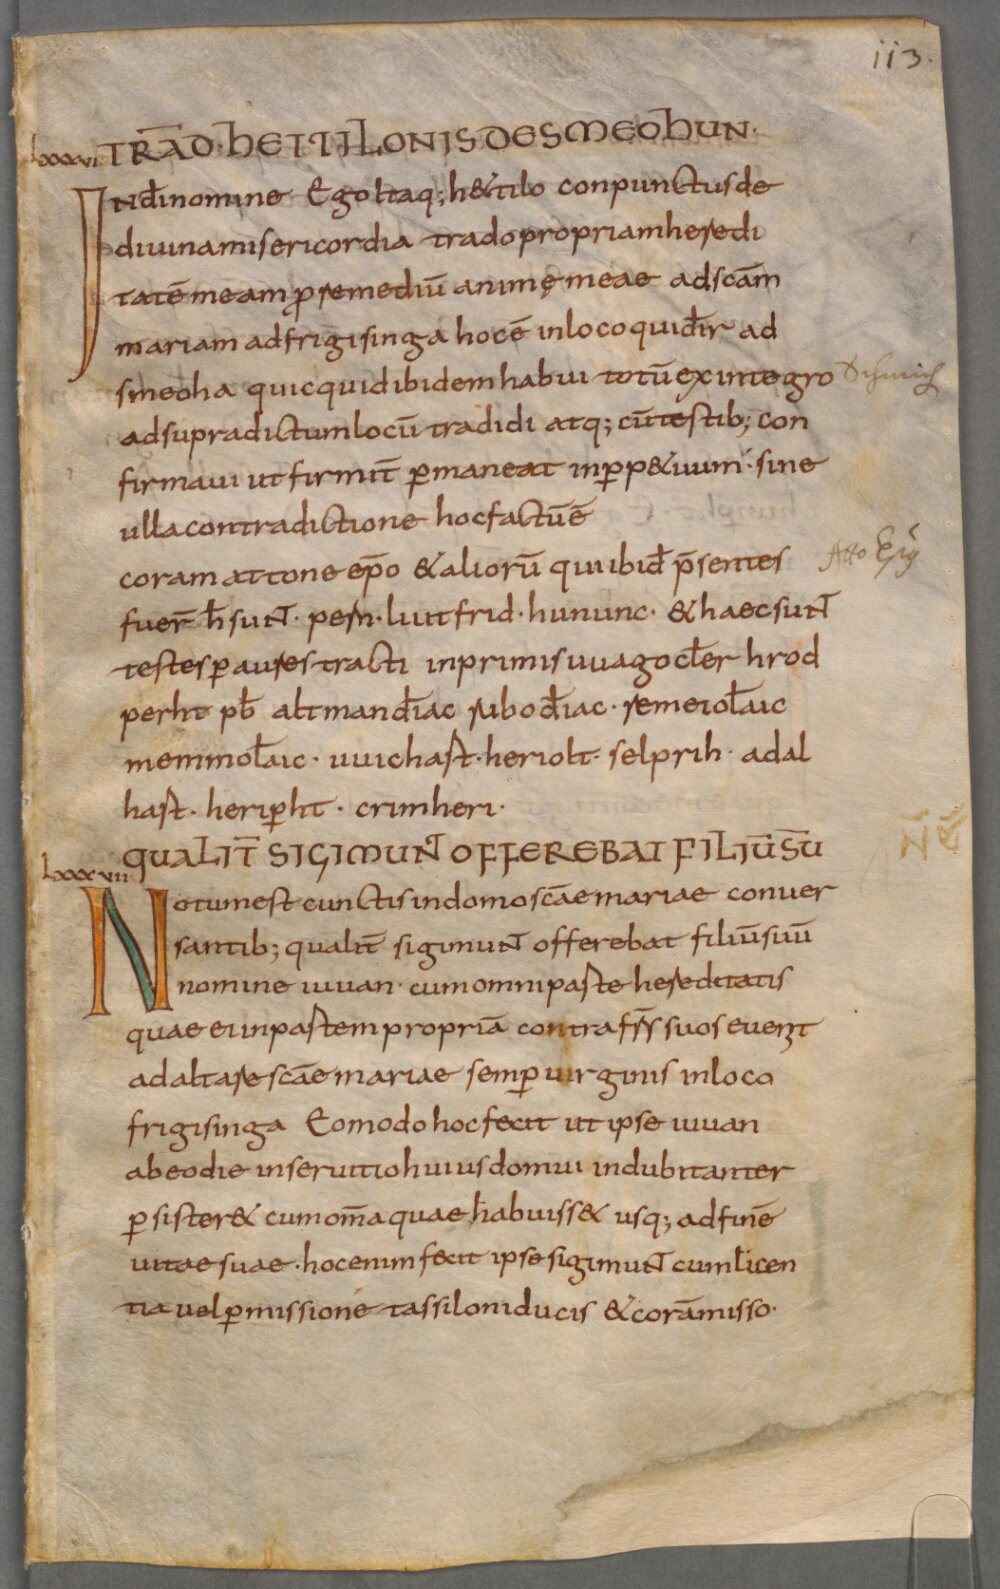 113.
lxxxvi TRAD̄·HEITILONIS DE SMEOHUN·
IN dī nomine Ego itaq; h&tilo conpunctus de
diuina misericordia trado propriam heredi
tatē meam ꝓ remediū animę meae ad scām
mariam ad frigisinga hoc ē in loco qui dr̄ ad
smeoha quicquid ibidem habui totū ex integro
Schmich
ad supradictum locū tradidi atq; cū testib; con
firmaui ut firmit̄ ꝑmaneat in ꝑp&uum· sine
ulla contradictione hoc factū ē
coram attone ep̄o & aliorū qui ibid̄ p̄sentes
Atto Ep̄s
fuer̄ h̄ sunt· pern· liutfrid· hununc· & haec sunt
testes ꝑ aures tracti inprimis uuago cl̄er hrod
perht pb̄ altman diac̄ subo diac̄· remeio laic̄
memmo laic̄· uuichast· heriolt· selprih· adal
hast· heriꝑht· crimheri·
lxxxvii QUALIT̄ SIGIMUNT OFFEREBAT FILIŪ SŪU
Notum est cunctis in domo scāe mariae conuer
santib; qualit̄ sigimunt offerebat filiū suū
nomine uuan· cum omni parte hereditatis
quae ei in partem propriā contra fr̄s suos euenit
ad altare scāe mariae semꝑ uirginis in loco
frigisinga Eo modo hoc fecit ut ipse uuan
ab eo die in seruitio huius domui indubitanter
ꝑsister& cum om̄a quae habuiss& usq; ad finē
uitae suae· hoc enim fecit ipse sigimunt cum licen
tia uel ꝑmissione tassiloni ducis & corā misso·